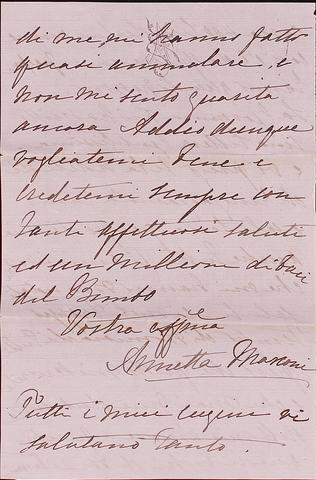 di me mi hanno fatto
quasi ammalare, e
non mi sento guarita
ancora Addio dunque
vogliatemi bene e
credetemi sempre con
tanti affettuosi saluti
ed un millione di baci
del Bimbo
Vostra affma
Annetta Marconi
Tutti i miei cugini vi
salutano tanto.